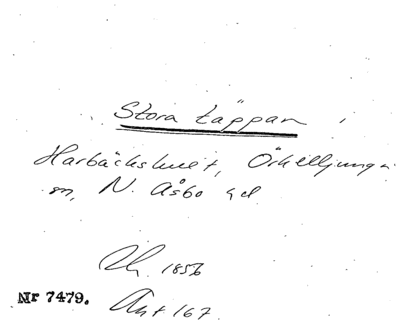 Stora täppan
Harbäckshult, Örkelljunga
sn, N. Åsbo hd
1856
Nr 7479.
Akt 167.